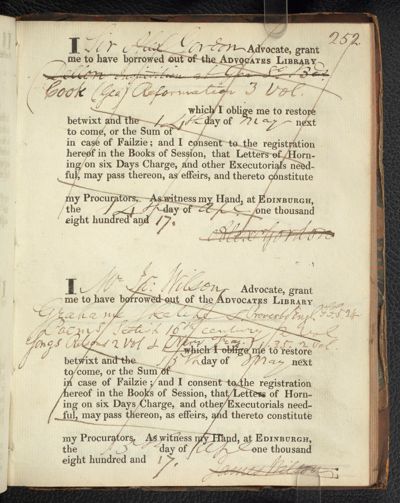 252
I Sir Alex Gordon Advocate, grant
me to have borrowed out of the ADVOCATES LIBRARY
Cook (Geo) Reformation 3 Vol.
which I oblige me to restore
betwixt and the 14th day of May next
to come, or the Sum of
in case of Failzie; and I consent to the registration
hereof in the Books of Session, that Letters of Horn-
ing on six Days Charge, and other Executorials need-
ful, may pass thereon, as effeirs, and thereto constitute
my Procurators. As witness my Hand, at EDINBURGH,
the 14th day of April one thousand
eight hundred and 17.
I Mr Js: Wilson Advocate, grant
me to have borrowed out of the ADVOCATES LIBRARY
Grahame
Poems Scotish 16th century 2 vol
Songs 2 vol
which I oblige me to restore
betwixt and the 15th day of May next
to come, or the Sum of
in case of Failzie; and I consent to the registration
hereof in the Books of Session, that Letters of Horn-
ing on six Days Charge, and other Executorials need-
ful, may pass thereon, as effeirs, and thereto constitute
my Procurators. As witness my Hand, at EDINBURGH,
the 15 day of April one thousand
eight hundred and 17.
James Wilson